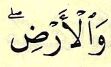 وَٱلۡأَرۡضِۖ